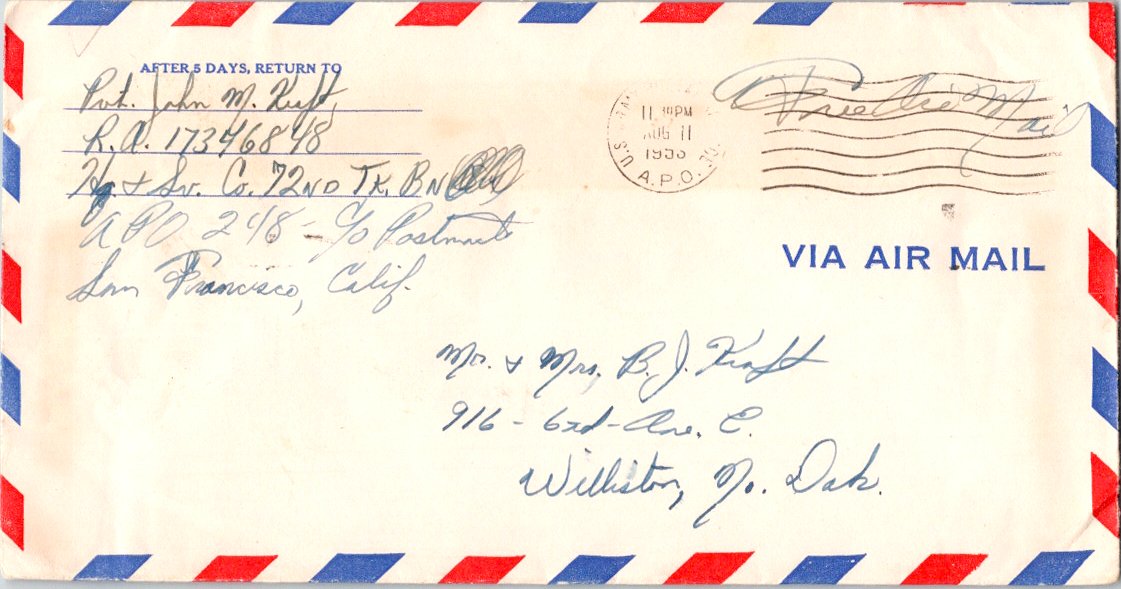 AFTER 5 DAYS, RETURN TO
Pvt. John M. Kraft,
R.A. 17346848
Hq & Sv. Co. 72ND TK. BN
APO 248 - c/o Postmast
San Francisco, Calif.
11 30 PM
AUG 11
1953
U.S.
A.P.O.
Free Air Mail
VIA AIR MAIL
Mr. & Mrs. B. J. Kraft
916 - 6rd - Ave. E.
Williston, No. Dak.